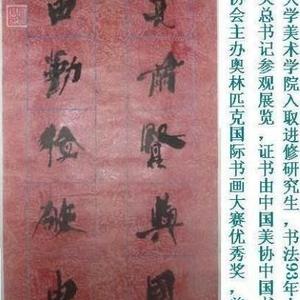 大学美术学院入取进修研究生，书法93年
总书记参观展览，证书由中国美协中国书
协会主办奥林匹克国际书画大赛优秀奖，
覽前賢與國
由勤儉破由